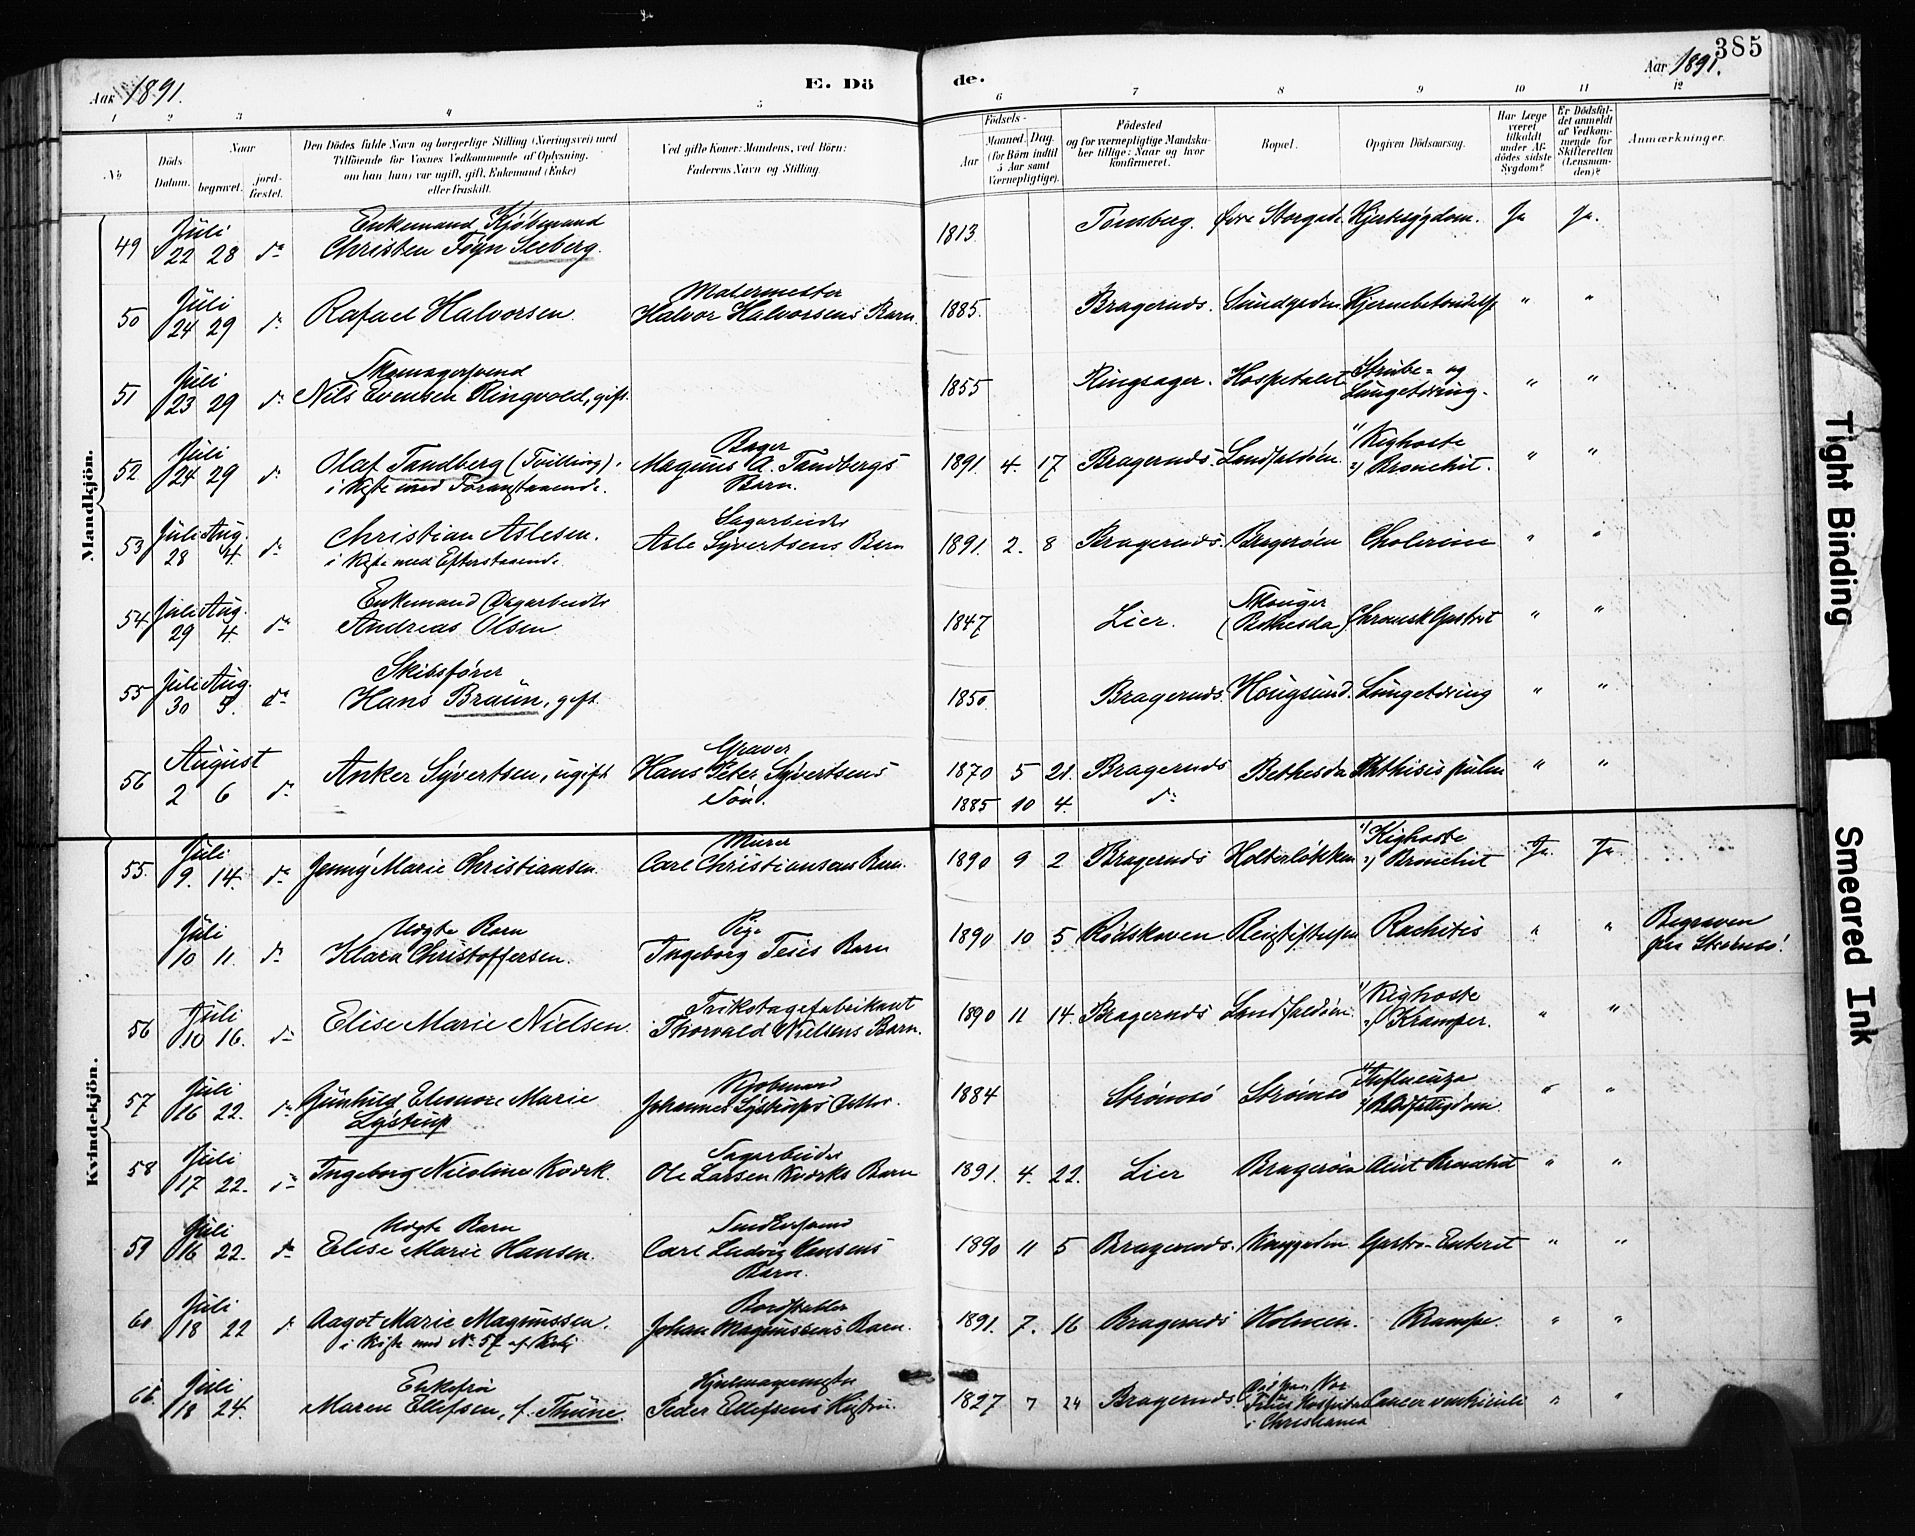 385
Aar 1891.
E. Dö
de.
Aar 1891.
1 2 3 4 5 6 7 8 9 10 11 12
No
Döds Datum.
Naar
begravet.
jord-fæstet.
Den Dödes fulde Navn og borgerlige Stilling (Næringsvei) med
Tilföiende for Voxnes Vedkommende af Oplysning,
om han (hun) var ugift, gift, Enkemand (Enke)
eller fraskilt.
Ved gifte Koner: Mandens, ved Börn:
Faderens Navn og Stilling.
Födsels-
Aar
Maaned.
Dag.
(for Börn indtil
5 Aar samt
Værnepligtige).
Födested
og for værnepligtige Mandska-
ber tillige: Naar og hvor
konfirmeret.
Bopæl.
Opgiven Dödsaarsag.
Har Læge
været
tilkaldt
under Af-
dödes sidste
Sygdom?
Er Dödsfal-
det anmeldt
af Vedkom-
mende for
Skifteretten
(Lensman-
den)?
Anmærkninger.
Mandkjön.
49 Juli 22 28 do Enkemand, Kjøbmand
Christen Føyn Seeberg. 1813 Tønsberg. Øvre Storgade Hjertesygdom. Ja Ja.
50 Juli 24 29 do Rafael Halvorsen. Malermester
Halvor Halvorsens Barn. 1885. Bragernæs. Sundgaden Hjernebetændelse " "
51 Juli 23 29 do Skomagersvend
Nils Evensen Ringvold, gift. 1855 Ringsager. Hospitalet Strube- og
Lungetæring. " "
52 Juli 24 29 do Olaf Tandberg (Tvilling). Bager
i Kiste med Foranstaaende. Magnus A. Tandbergs
Barn. 1891. 4. 17 Bragernæs. Landfaldøen 1) Kighoste
2) Bronchit. " "
53 Juli 28 Aug. 4. do Christian Aslesen. Sagarbeider
i Kiste med Efterstaaende. Asle Syvertsens Barn 1891. 2. 8 Bragernæs. Bragerøen Cholerine " "
54 Juli 29 Aug. 4 do Enkemand Dagarbeider
Andreas Olsen 1847 Lier. Skouger
(Bethesda) Chronisk Gastrit " "
55 Juli 30 Aug. 5. do Skibsfører
Hans Braun, gift. 1850. Bragernæs. Hougsund. Lungetæring " "
56 August 2 6 do Anker Syvertsen, ugift Graver
Hans Peter Syvertsens
Søn. 1870 5 21. Bragernæs Bethesda Phthisis pulm " "
1885 10 4. do
Kvindekjön.
55. Juli 9. 14. do Jenny Marie Christiansen. Murer
Carl Christiansens Barn. 1890 9 2 Bragernæs Holterløkken 1) Kighoste
2) Bronchit Ja Ja
Juli 10 11. do Uægte Barn
Klara Christoffersen. Pige
Ingeborg Teies Barn 1890 10 5 Rødskoven Rachitis " " Begraven
paa Strømsø!
56 Juli 10 16. do Elise Marie Nielsen. Trikotagefabrikant
Thorvald Nielsens Barn. 1890 11 14. Bragernæs Landfaldøen. 1) Kighoste
2) Kramper. " "
57 Juli 16 22. do Gunhild Eleonore Marie
Lystrup Kjøbmand
Johannes Lystrups Datter. 1884 Strømsø Strømsø 1) Influenza
2) Blodfattigdom. " "
58 Juli 17 22. do Ingeborg Nicoline Kværk. Sagarbeider
Ole Larsen Kværks Barn 1891. 4. 22. Lier Bragerøen Acut Bronchit " "
59 Juli 16 22. do Uægte Barn
Elise Marie Hansen. Snedkersvend
Carl Ludvig Hansens
Barn. 1890 11 5 Bragernæs. Gastro-Enterit " "
60 Juli 18 22 do Aagot Marie Magnussen. Bordstabler
i Kiste med No 57 af Mkj Johan Magnussens Barn. 1891. 7. 16 Bragernæs Holmen. Krampe. " "
Juli 18 24. Enkefru
Maren Ellefsen, f. Thune. Hjulmagermester
Peder Ellefsens Hustru. 1827 7 24 Bragernæs. Hospital
i Christiania Cancer ventriculi " "
Tight Binding
Smeared Ink